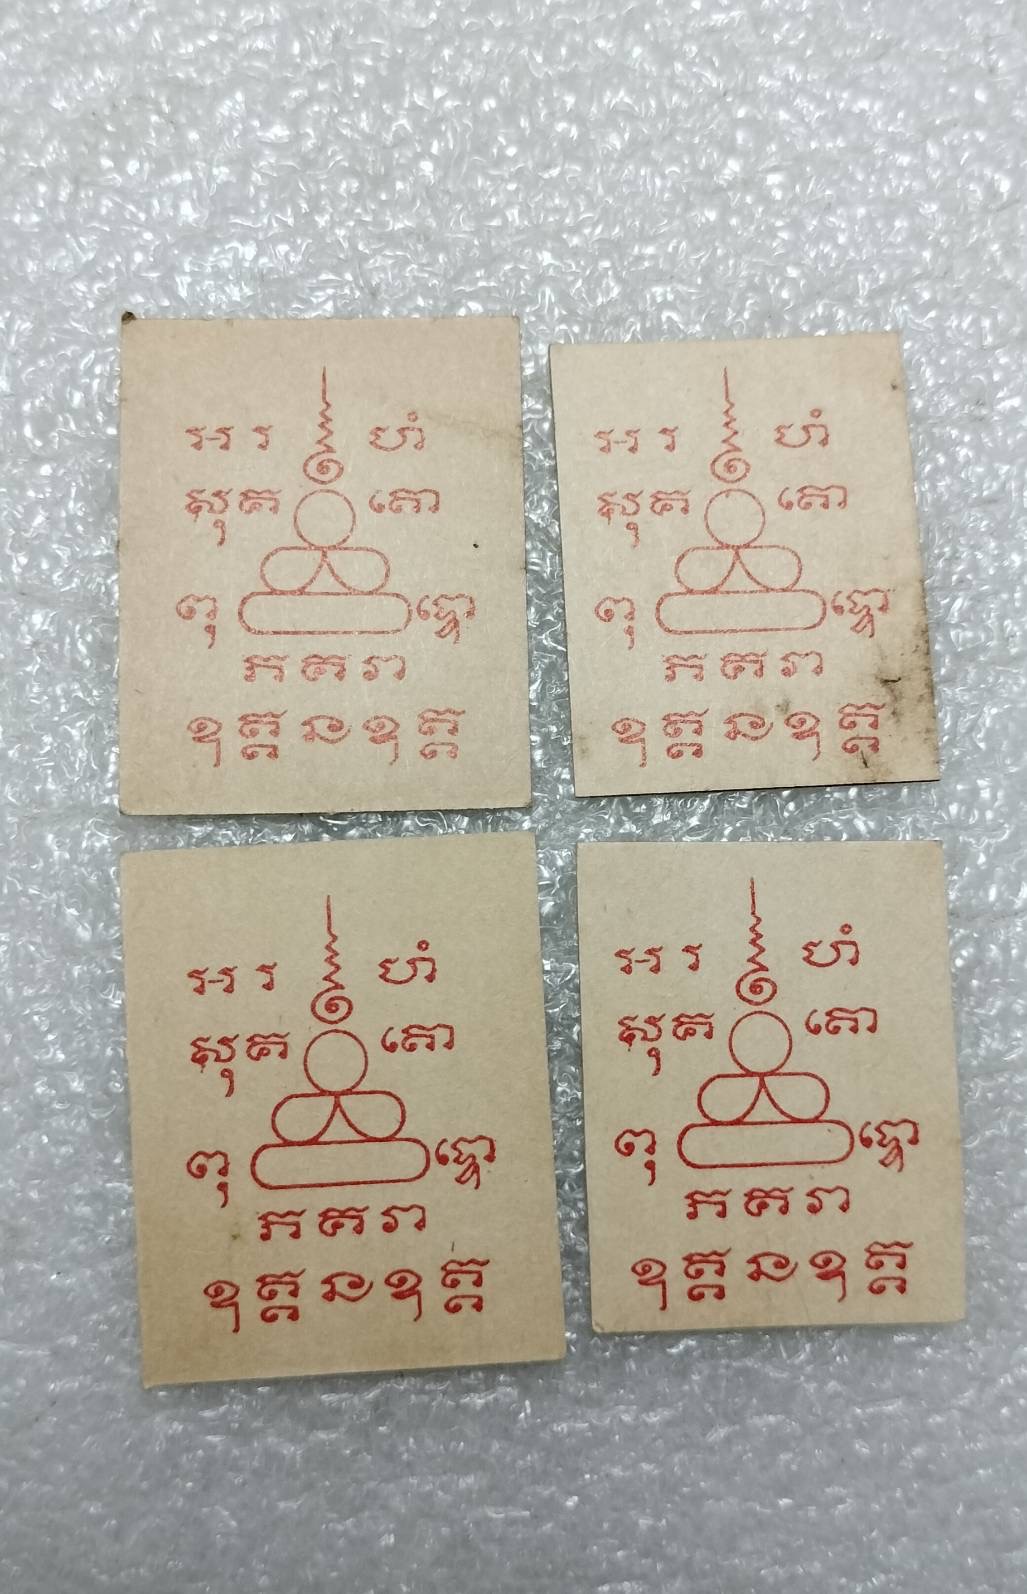 អ រ ហំ
សុគ តោ
ពុ ទ្ធោ
ក គ រា
ឧត្ត ន ឧត្ត
អ រ ហំ
សុគ តោ
ពុ ទ្ធោ
ក គ រា
ឧត្ត ន ឧត្ត
អ រ ហំ
សុគ តោ
ពុ ទ្ធោ
ក គ រា
ឧត្ត ន ឧត្ត
អ រ ហំ
សុគ តោ
ពុ ទ្ធោ
ក គ រា
ឧត្ត ន ឧត្ត